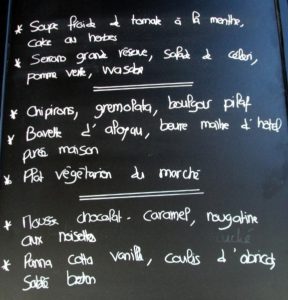 * Soupe froide d tomate à la menthe,
Cake au herbes
* Serrano grande réserve, salade de céleri,
pomme verte, wasabi
* Chipirons, gremolata, boulgour pilaf
* Bavette d'aloyau, beurre maître d'hôtel
purée maison
* Plat végétarien du marché
* Mousse chocolat-caramel, nougatine
aux noisettes
* Panna cotta vanille, coulis d'abricot,
Sablé breton